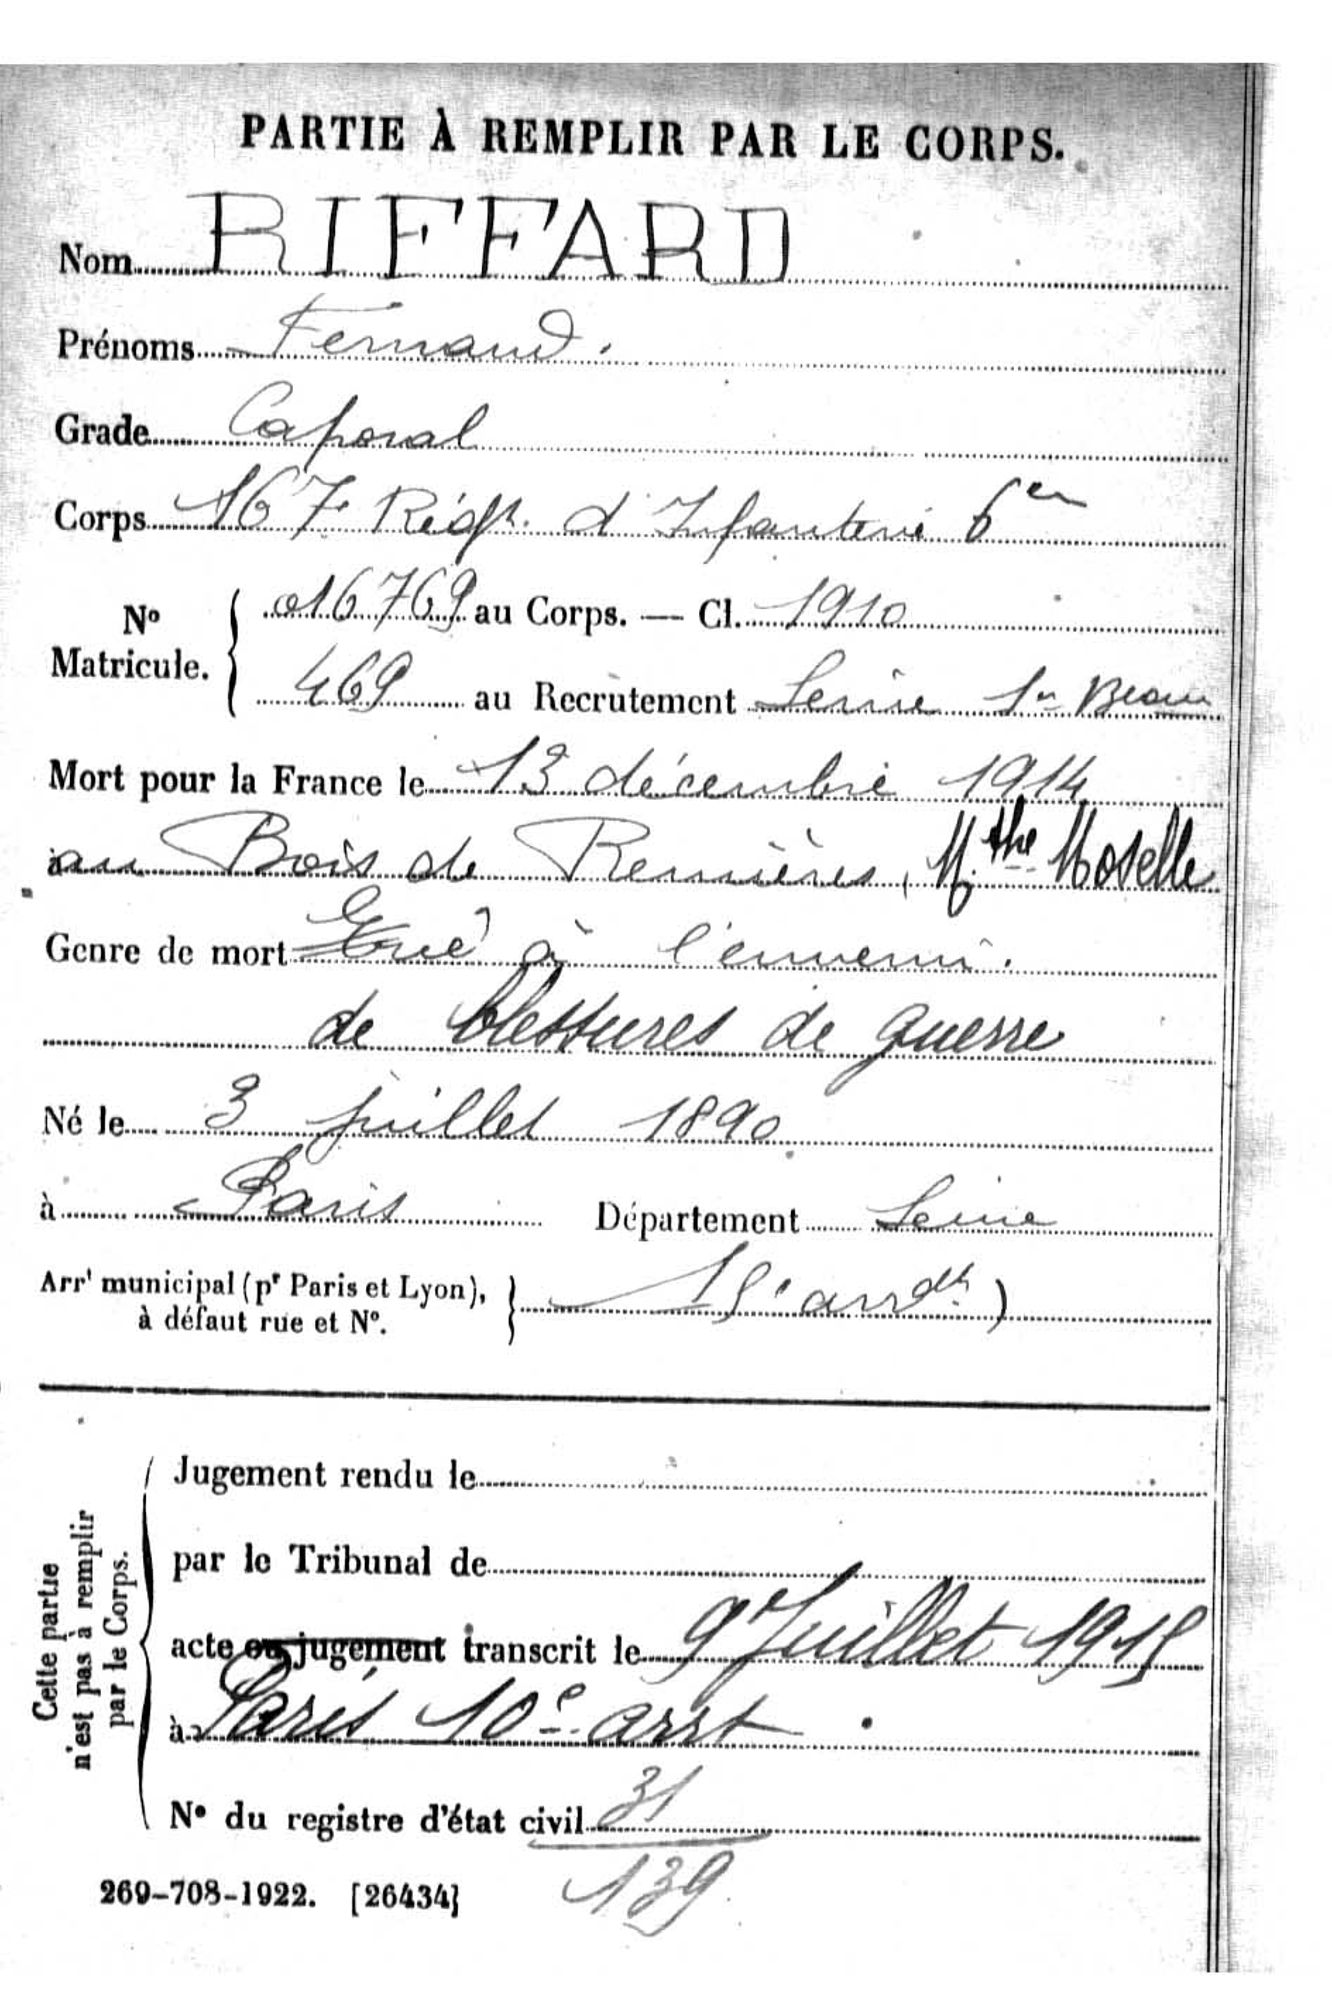 PARTIE À REMPLIR PAR LE CORPS.
Nom RIFFARD
Prénoms Fernand.
Grade Caporal
Corps 167e Régt. d'Infanterie 6e Cie
No Matricule. { 016769 au Corps. — Cl. 1910
469 au Recrutement Seine 1er Bureau
Mort pour la France le 13 décembre 1914
au Bois de Remières, Mthe Moselle
Genre de mort Tué à l'ennemi.
de blessures de guerre
Né le 3 juillet 1890
à Paris Département Seine
Arrt municipal (pr Paris et Lyon), à défaut rue et No. } arrdt)
Cette partie n'est pas à remplir par le Corps.
Jugement rendu le
par le Tribunal de
acte ou jugement transcrit le 9 Juillet 1915
à Paris 10e arrt.
No du registre d'état civil 31
139
269-708-1922. [26434]